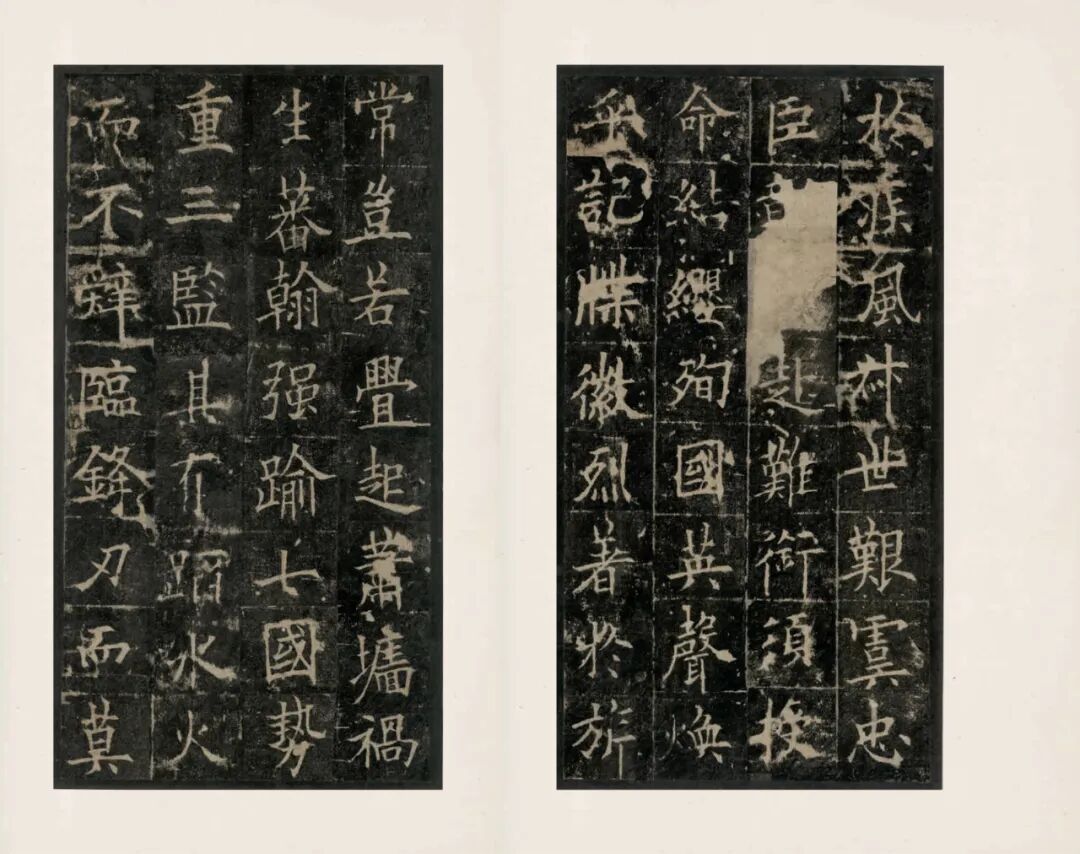 於疾風叔世艱虞忠
臣赴難銜須授
命結纓殉國英聲煥
乎記牒徽烈著於旂
常豈若疊起蕭墻禍
生蕃翰强踰七國勢
重三監其有蹈水火
而不辭臨鋒刃而莫